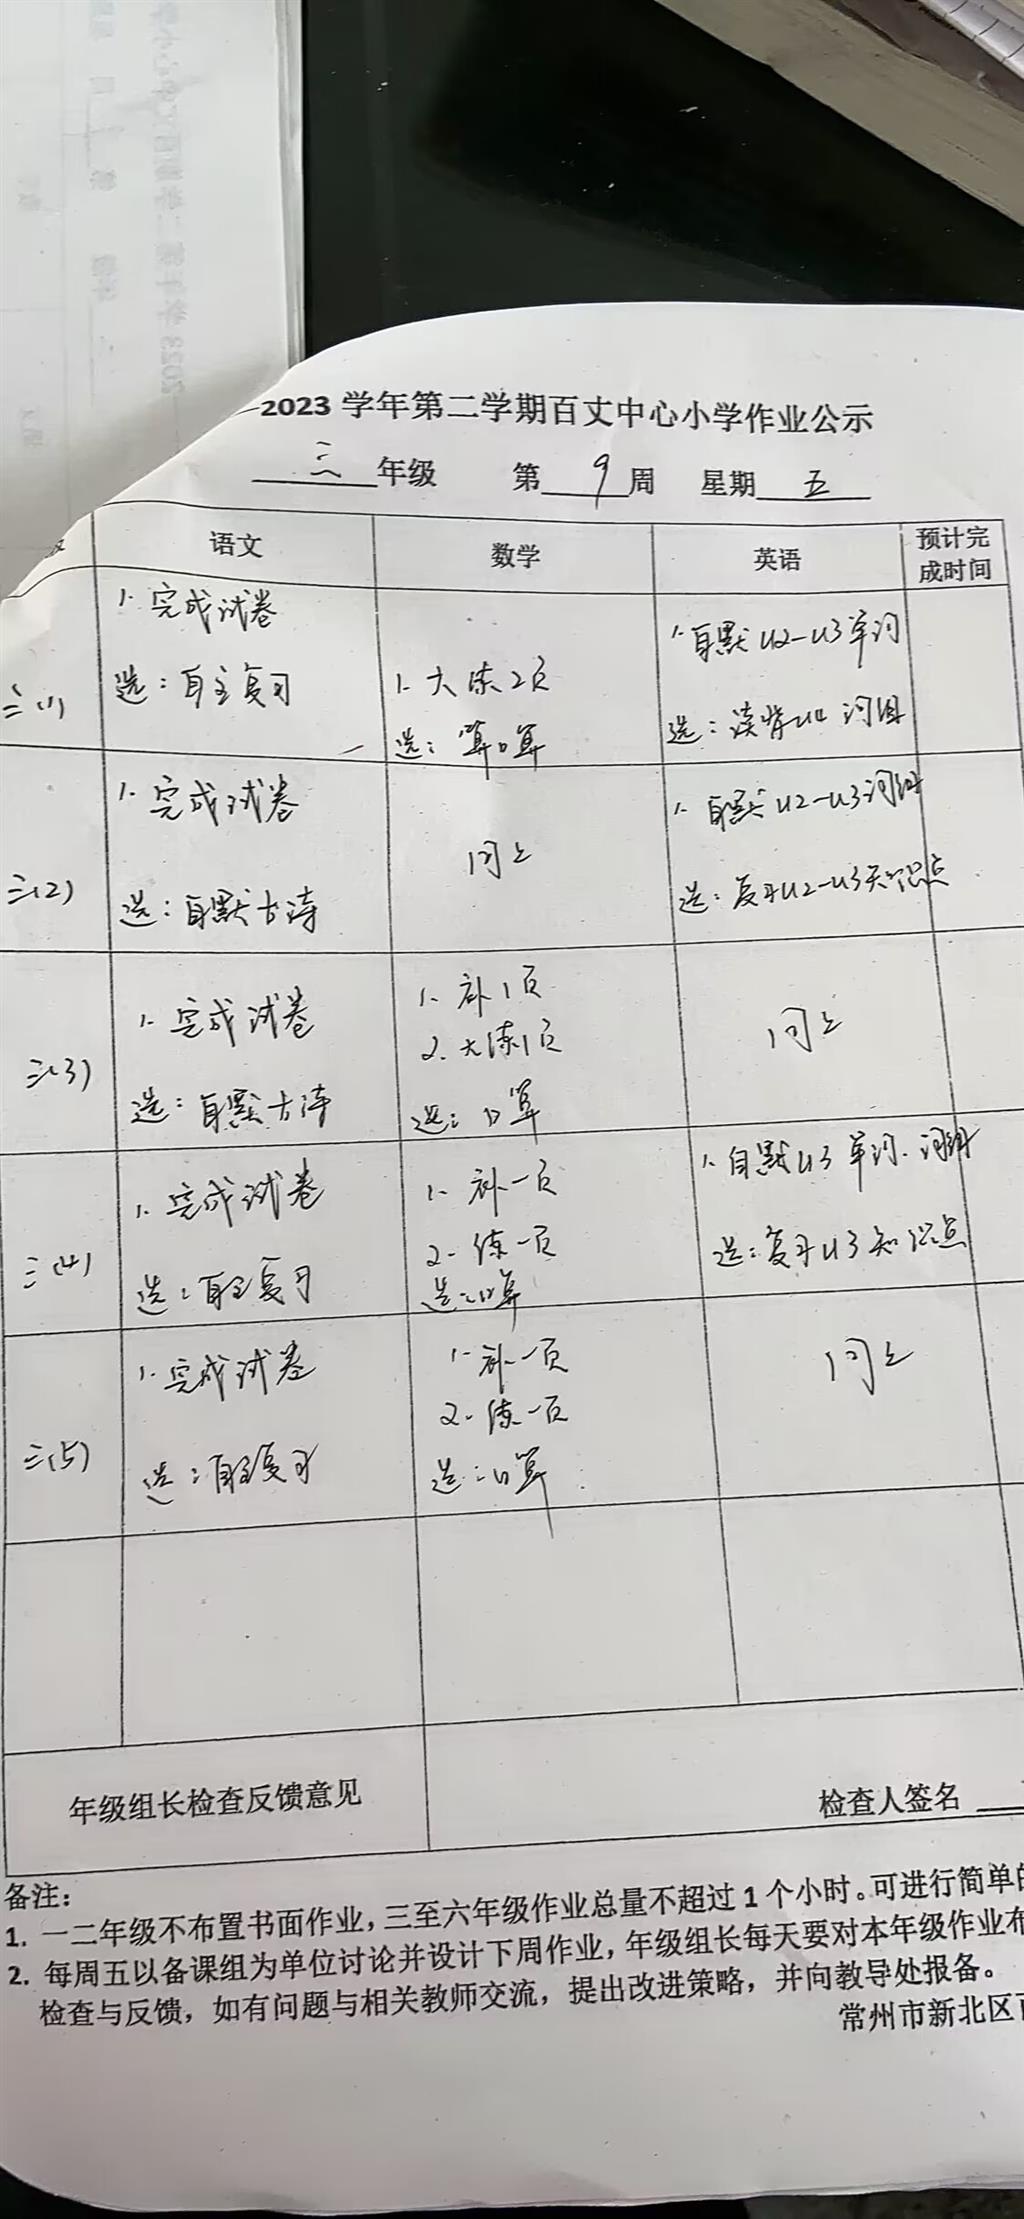 2023 学年第二学期百丈中心小学作业公示
三 年级 第 9 周 星期 五
语文 数学 英语 预计完成时间
三(1)
1. 完成试卷
选：自主复习
1. 大练2页
选：算口算
1. 自默U2-U3单词
选：读背U4 词组
三(2)
1. 完成试卷
选：自默古诗
同上
1. 自默U2-U3词组
选：复习U2-U3知识点
三(3)
1. 完成试卷
选：自默古诗
1. 补1页
2. 大练1页
选：口算
同上
三(4)
1. 完成试卷
选：自主复习
1. 补一页
2. 练一页
选：口算
1. 自默U3 单词、词组
选：复习U3知识点
三(5)
1. 完成试卷
选：自主复习
1. 补一页
2. 练一页
选：口算
同上
年级组长检查反馈意见
检查人签名
备注：
1. 一二年级不布置书面作业，三至六年级作业总量不超过 1 个小时。可进行简单的
2. 每周五以备课组为单位讨论并设计下周作业，年级组长每天要对本年级作业布
检查与反馈，如有问题与相关教师交流，提出改进策略，并向教导处报备。
常州市新北区百